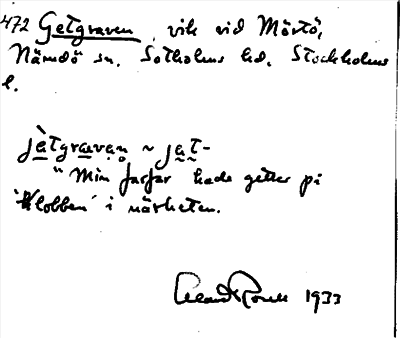 472 Getgraven, vik vid Mörtö,
Nämdö sn. Sotholms hd. Stockholms
l.
jètgraven ~ jet-
"Min farfar hade getter på
'Klobben' i närheten.
1933